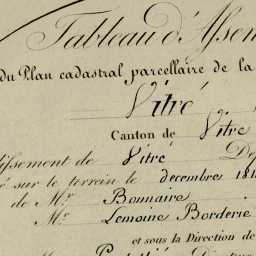 Tableau d'Assem
du Plan cadastral parcellaire de la
Vitré
Canton de Vitré
issement de Vitré Dép
é sur le terrain le decembre 181
de Mr Bonnaire
Mr Lemoine Borderie
et sous la Direction de